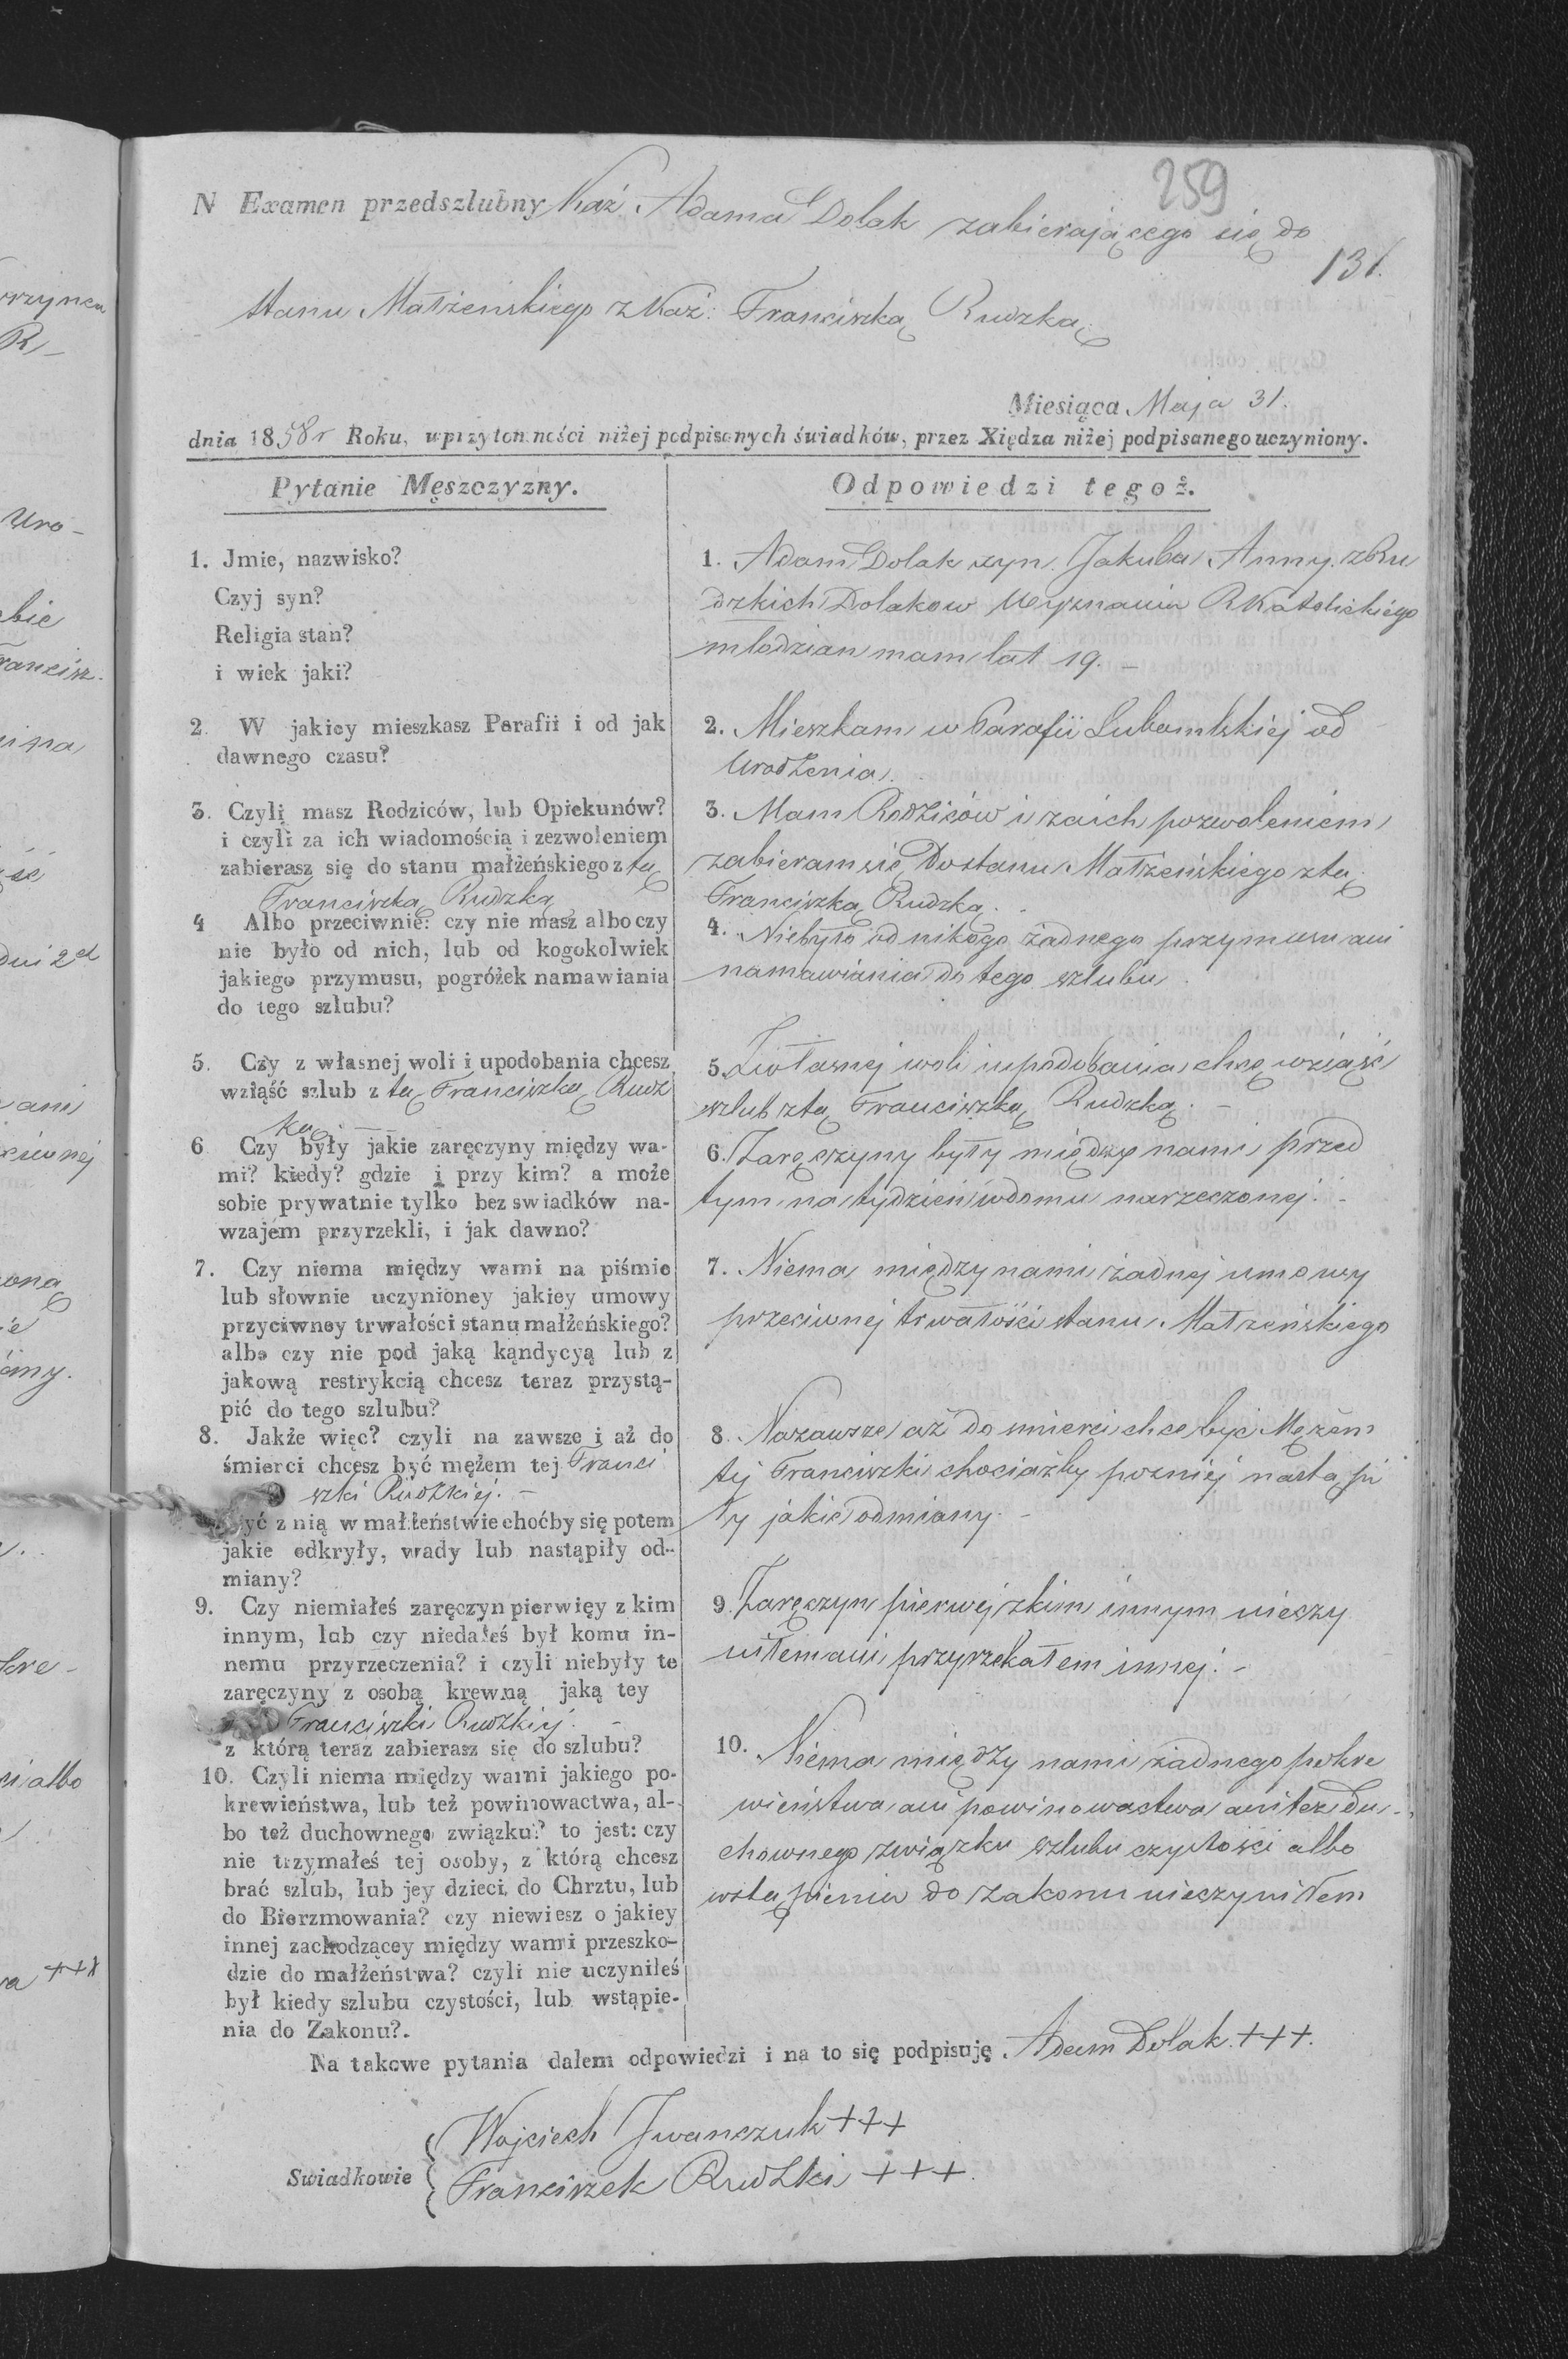 259
N Examen przedszlubny Kaź. Adama Dolak zabierającego się do
131.
stanu Małżeńskiego z Kaź: Franciszką Rudzką
Miesiąca Maja 31.
dnia 1858r Roku, w przytomności niżej podpisanych świadków, przez Xiędza niżej podpisanego uczyniony.
Pytanie Męszczyzny.
1. Jmie, nazwisko?
Czyj syn?
Religia stan?
i wiek jaki?
2. W jakiey mieszkasz Parafii i od jak
dawnego czasu?
3. Czyli masz Rodziców, lub Opiekunów?
i czyli za ich wiadomością i zezwoleniem
zabierasz się do stanu małżeńskiego z tą
Franciszką Rudzką
4 Albo przeciwnie: czy nie masz albo czy
nie było od nich, lub od kogokolwiek
jakiego przymusu, pogróżek namawiania
do tego szlubu?
5. Czy z własnej woli i upodobania chcesz
wziąść szlub z tą Franciszką Rudz
ką
6 Czy były jakie zaręczyny między wa-
mi? kiedy? gdzie i przy kim? a może
sobie prywatnie tylko bez swiadków na-
wzajem przyrzekli, i jak dawno?
7. Czy niema między wami na piśmie
lub słownie uczynioney jakiey umowy
przyciwney trwałości stanu małżeńskiego?
albo czy nie pod jaką kąndycyą lub z
jakową restrykcią chcesz teraz przystą-
pić do tego szlubu?
8. Jakże więc? czyli na zawsze i aż do
śmierci chcesz być mężem tej Franci
szki Rudzkiej. -
yć z nią w małżeństwie choćby się potem
jakie odkryły, wady lub nastąpiły od-
miany?
9. Czy niemiałeś zaręczyn pierwięy z kim
innym, lub czy niedałeś był komu in-
nemu przyrzeczenia? i czyli niebyły te
zaręczyny z osobą krewną jaką tey
Franciszki Rudzkiej. -
z którą teraz zabierasz się do szlubu?
10. Czyli niema między wami jakiego po-
krewieństwa, lub też powinowactwa, al-
bo też duchownego związku? to jest: czy
nie trzymałeś tej osoby, z którą chcesz
brać szlub, lub jey dzieci, do Chrztu, lub
do Bierzmowania? czy niewiesz o jakiey
innej zachodzącey między wami przeszko-
dzie do małżeństwa? czyli nie uczyniłeś
był kiedy szlubu czystości, lub wstąpie-
nia do Zakonu?.
Odpowiedzi tegoż.
1. Adam Dolak syn Jakuba Anny z Ru
dzkich Dolakow Wyznania RKatolickiego
młodzian mam lat 19. -
2. Mieszkam w Parafii Lubomlskiéj od
Urodzenia.
3. Mam Rodziców i za ich pozwoleniem
zabieram się Do stanu Małżeńskiego z tą
Franciszką Rudzką.
4. Niebyło od nikogo żadnego przymusu ani
namawiania do tego szlubu
5. Zwłasnej woli i upodobania chcę wziąść
szlub z tą Franciszką Rudzką. -
6. Zaręczyny były między nami przed
tym na tydzień w domu narzeczonej. -
7. Niema między nami żadnej umowy
przeciwnej trwałości stanu Małżeńskiego
8. Nazawsze aż do smierci chce być Mężem
tej Franciszki chociażby pozniej nastąpi
ły jakie odmiany. -
9. Zaręczyn pierwéj z kim innym nieczy
niłem ani przyrzekałem innej. -
10. Niema między nami żadnego pokre
wieństwa ani powinowactwa ani tez du-
chownego związku szlubu czystości albo
wstąpienia do zakonu nieczyniłem
Na takowe pytania dałem odpowiedzi i na to się podpisuję Adam Dolak. +++.
Swiadkowie
Wojciech Jwanczuk +++
Franciszek Rudzki +++.